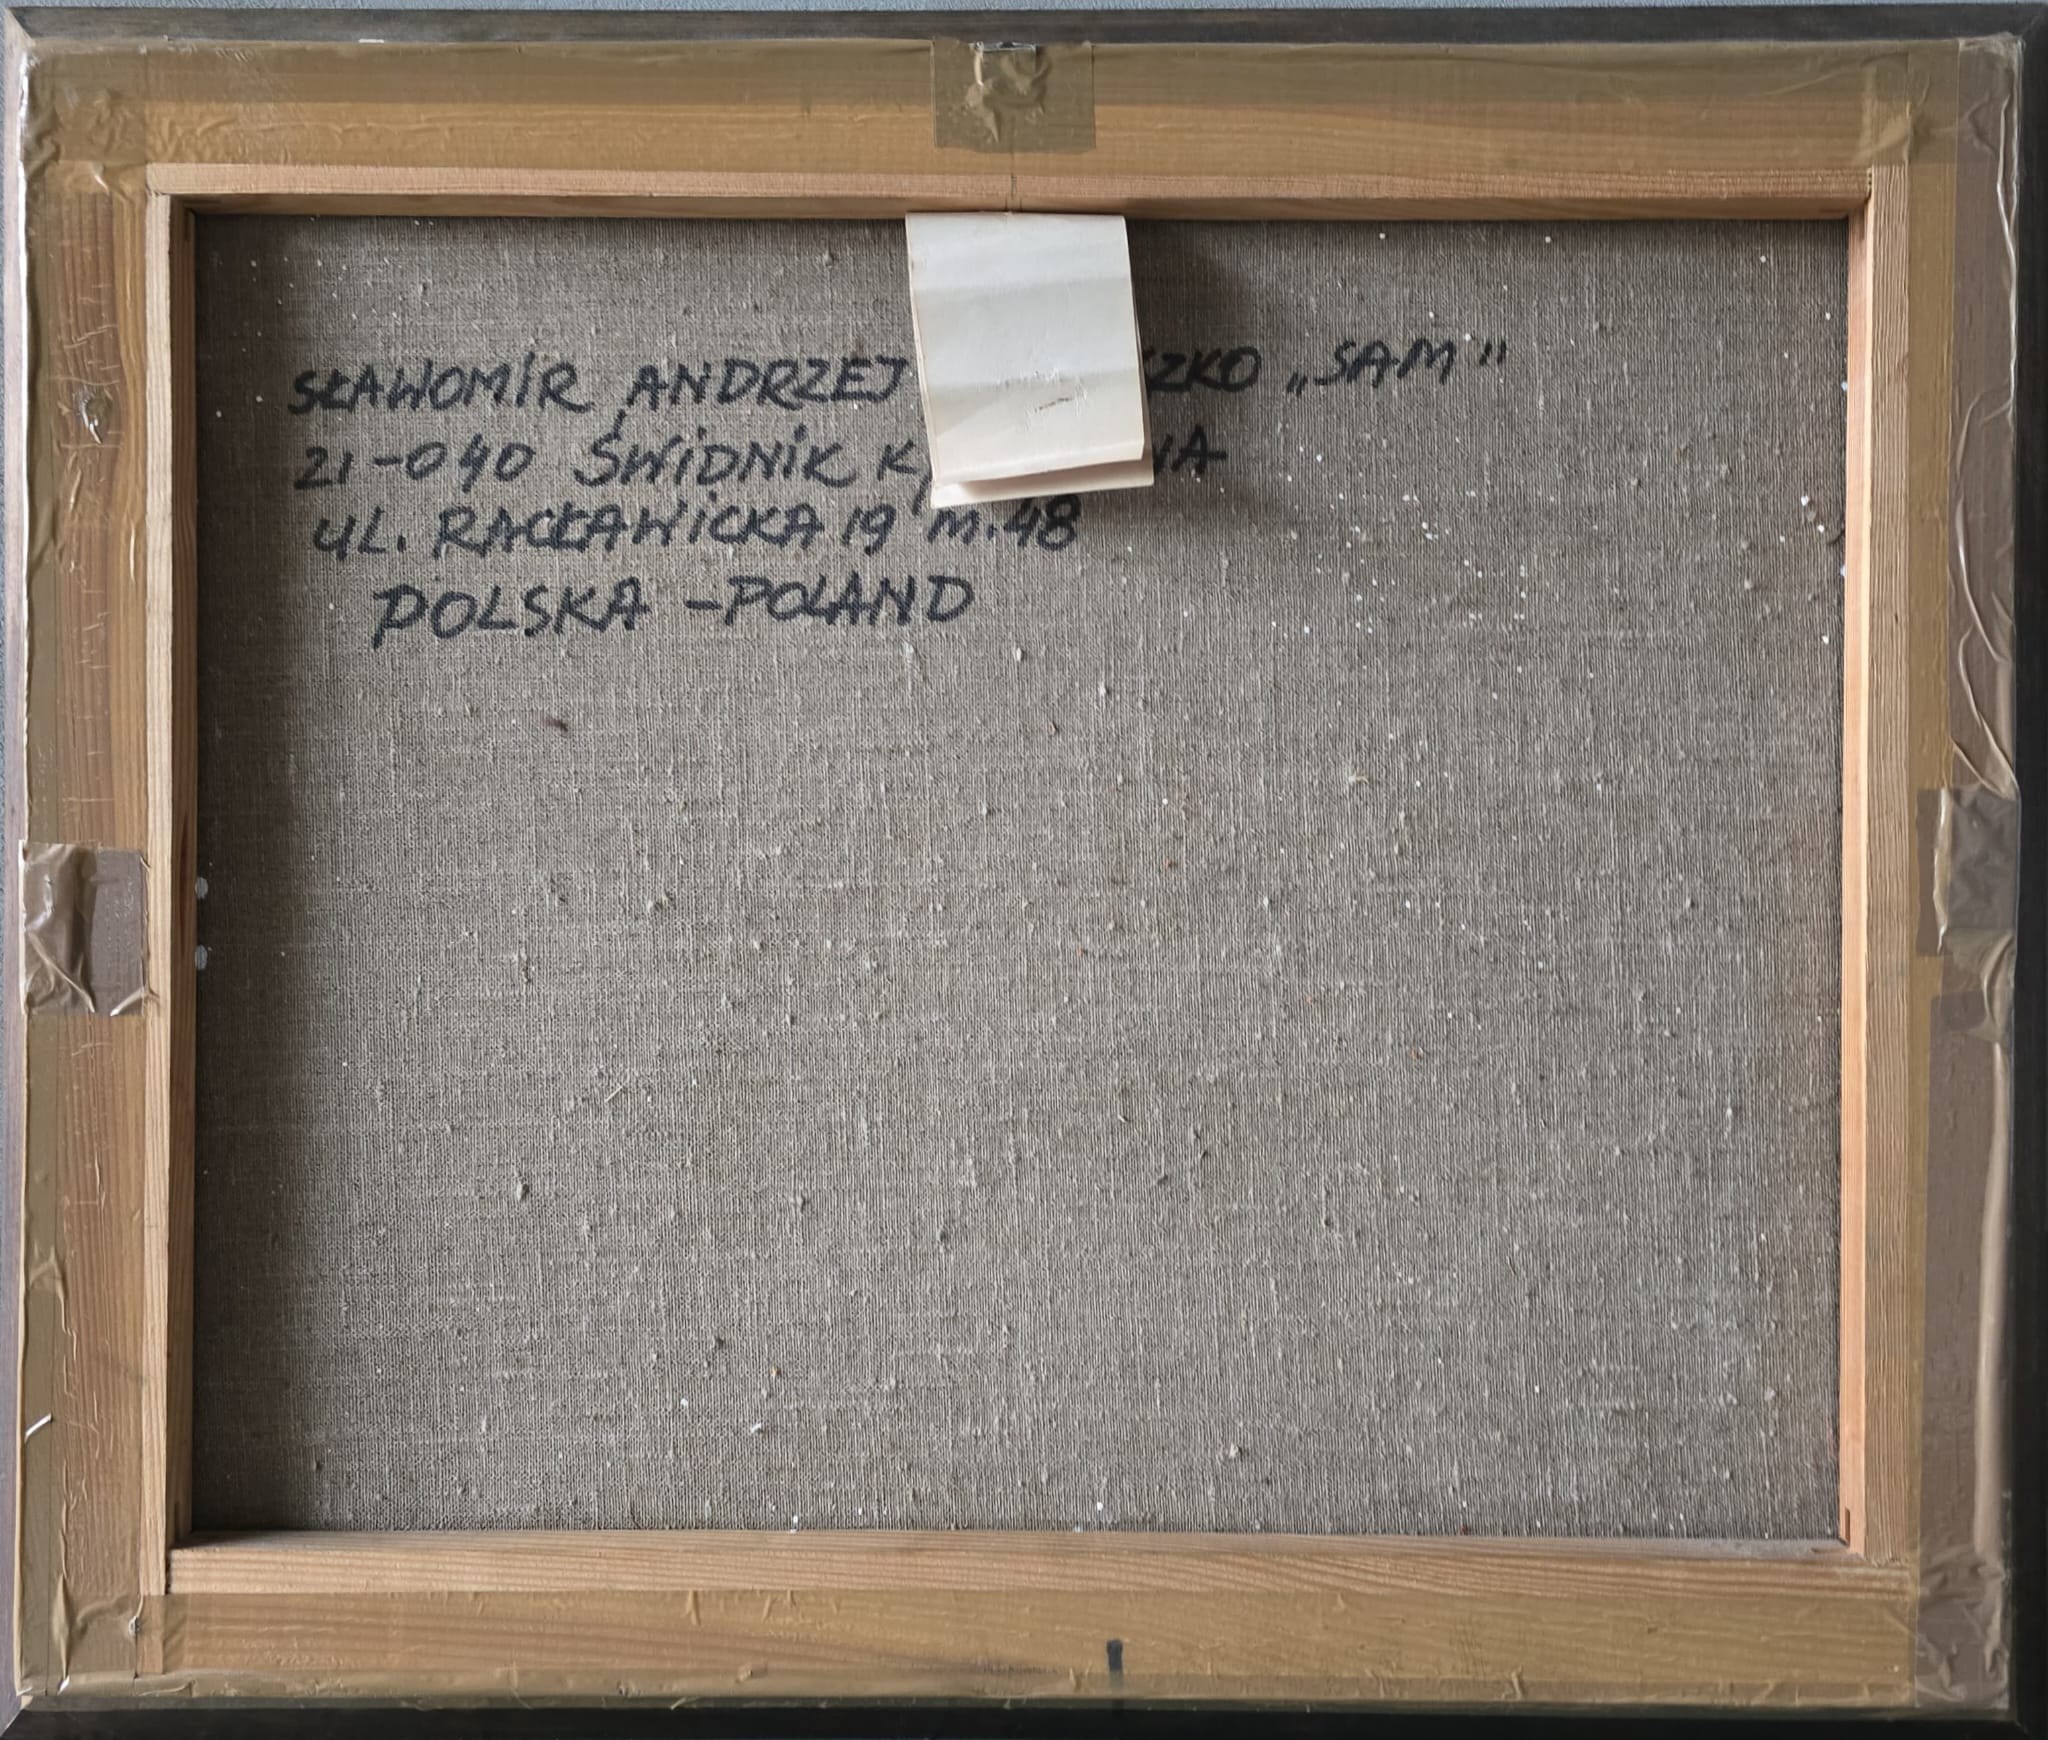 SŁAWOMIR ANDRZEJ SZKO „SAM"
21-040 ŚWIDNIK K/ NA
UL. RACŁAWICKA 19 M.48
POLSKA - POLAND